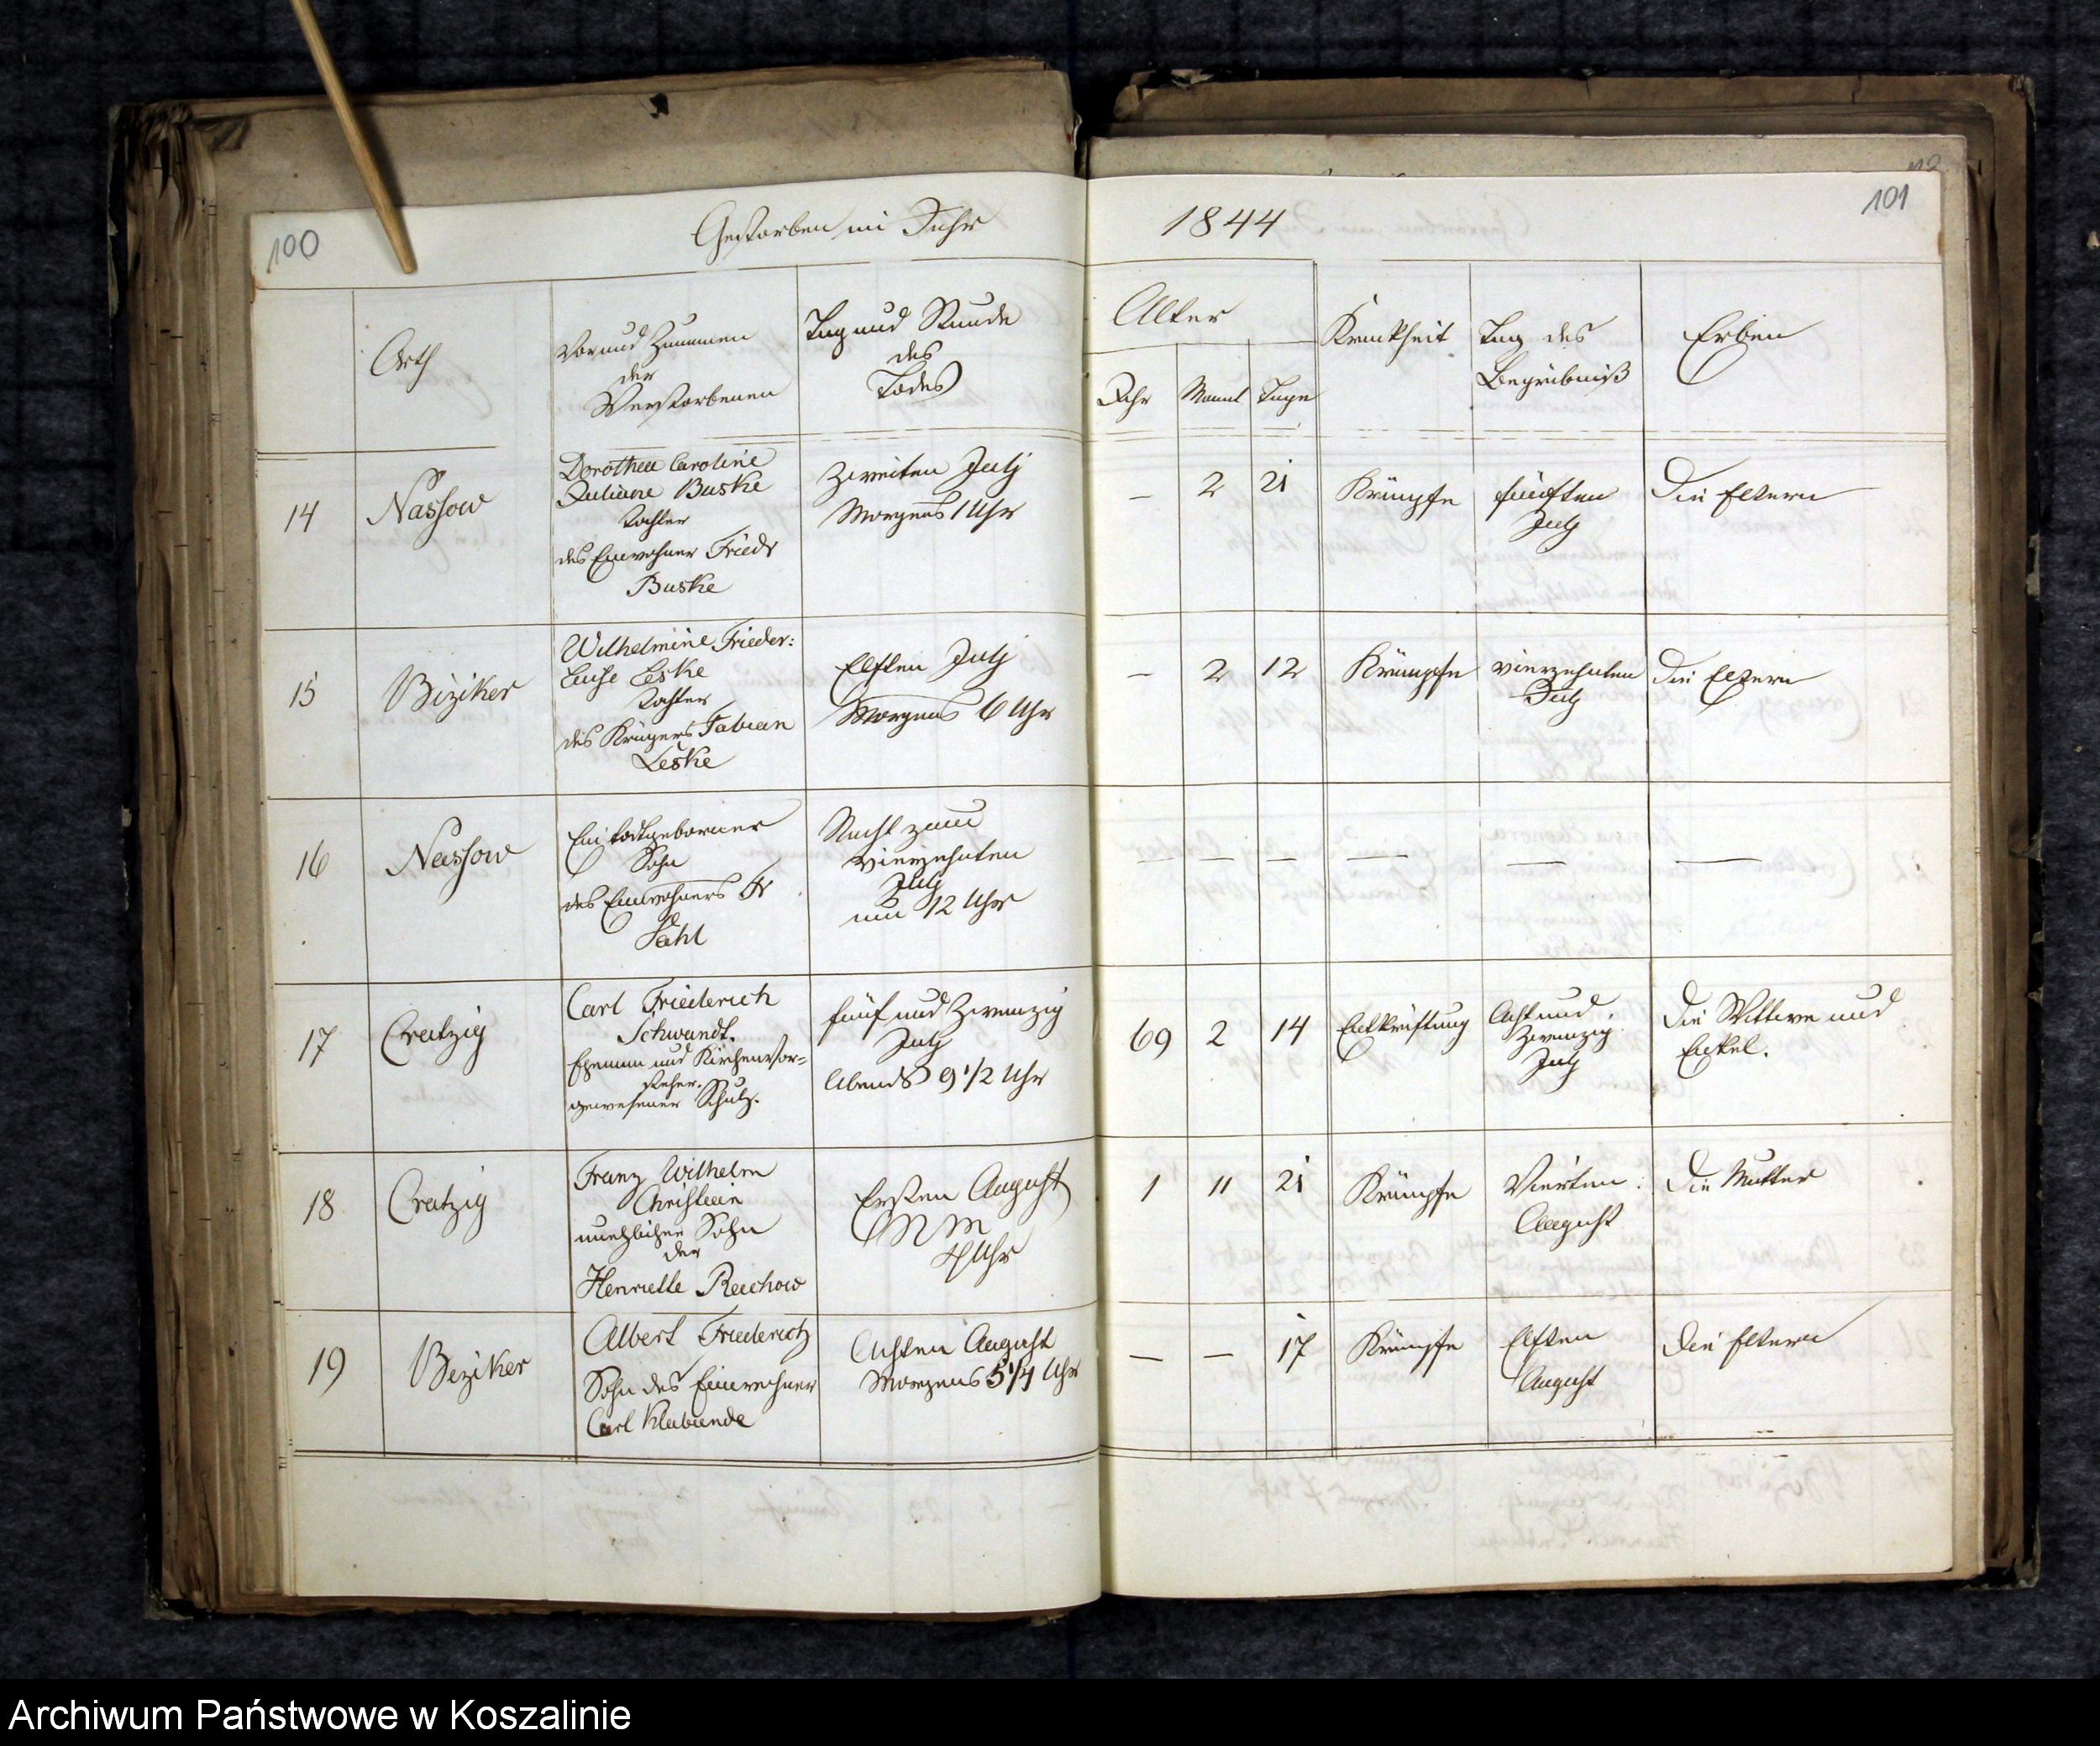 100
Gestorben im Jahr
1844
101
Orth
Vor und Zunamen
der
Verstorbenen
Tag und Stunde
des
Todes
Alter
Jahr
Monat
Tage
Krankheit
Tag des
Begräbniß
Erben
14
Nassow
Dorothea Caroline
Juliane Buske
Tochter
des Einwohner Friedr
Buske
Zweiten July
Morgens 1 Uhr
—
2
21
Krämpfe
fünften
July
Die Eltern
15
Biziker
Wilhelmine Frieder:
Luise Leske
Tochter
des Krügers Fabian
Leske
Elften July
Morgens 6 Uhr
—
2
12
Krämpfe
vierzehnten
July
Die Eltern
16
Nassow
Ein todtgeborner
Sohn
des Einwohners Fr
Pahl
Nacht zum
vierzehnten
July
um 12 Uhr
— — — — — —
17
Cratzig
Carl Friederich
Schwandt.
Ehemann und Kirchenvor-
steher.
gewesener Schulz.
fünf und Zwanzig
July
Abends 9 1/2 Uhr
69
2
14
Entkräftung
Acht und
Zwanzig
July
Die Wittwe und
Enkel.
18
Cratzig
Franz Wilhelm
unehlicher Sohn
der
Henriette Reichow
Ersten August
N M
4 Uhr
1
11
21
Krämpfe
Vierten
August
Die Mutter
19
Beziker
Albert Friederich
Sohn des Einwohner
Carl Klabunde
Achten August
Morgens 5 1/4 Uhr
—
—
17
Krämpfe
Elften
August
Die Eltern
Archiwum Państwowe w Koszalinie